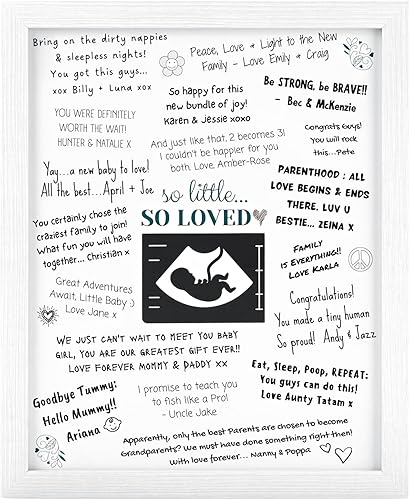 Bring on the dirty nappies
& sleepless nights!
You got this guys...
xox Billy + Luna xox
Peace, Love & Light to the New
Family - Love Emily & Craig
So happy for this
new bundle of joy!
Karen & Jessie xoxo
Be STRONG, be BRAVE!!
- Bec & McKenzie
YOU WERE DEFINITELY
WORTH THE WAIT!
HUNTER & NATALIE X
And just like that, 2 becomes 3!
I couldn't be happier for you
both. Love Amber-Rose
Congrats Guys!
You will rock
this...Pete
Yay...a new baby to love!
All the best...April + Joe
PARENTHOOD : ALL
LOVE BEGINS & ENDS
THERE. LUV U
BESTIE... ZEINA X
so little...
SO LOVED
You certainly chose the
craziest family to join!
What fun you will have
together... Christian x
FAMILY
IS EVERYTHING!!
Love Karla
Great Adventures
Await, Little Baby :)
Love Jane x
Congratulations!
You made a tiny human
So proud! Andy & Jazz
WE JUST CAN'T WAIT TO MEET YOU BABY
GIRL, YOU ARE OUR GREATEST GIFT EVER!!
LOVE FOREVER MOMMY & DADDY xx
Goodbye Tummy:
Hello Mummy!!
Ariana
I promise to teach you
to fish like a Pro!
- Uncle Jake
Eat, Sleep, Poop, REPEAT:
You guys can do this!
Love Aunty Tatam x
Apparently, only the best Parents are chosen to become
Grandparents? We must have done something right then!
with love forever... Nanny & Poppa